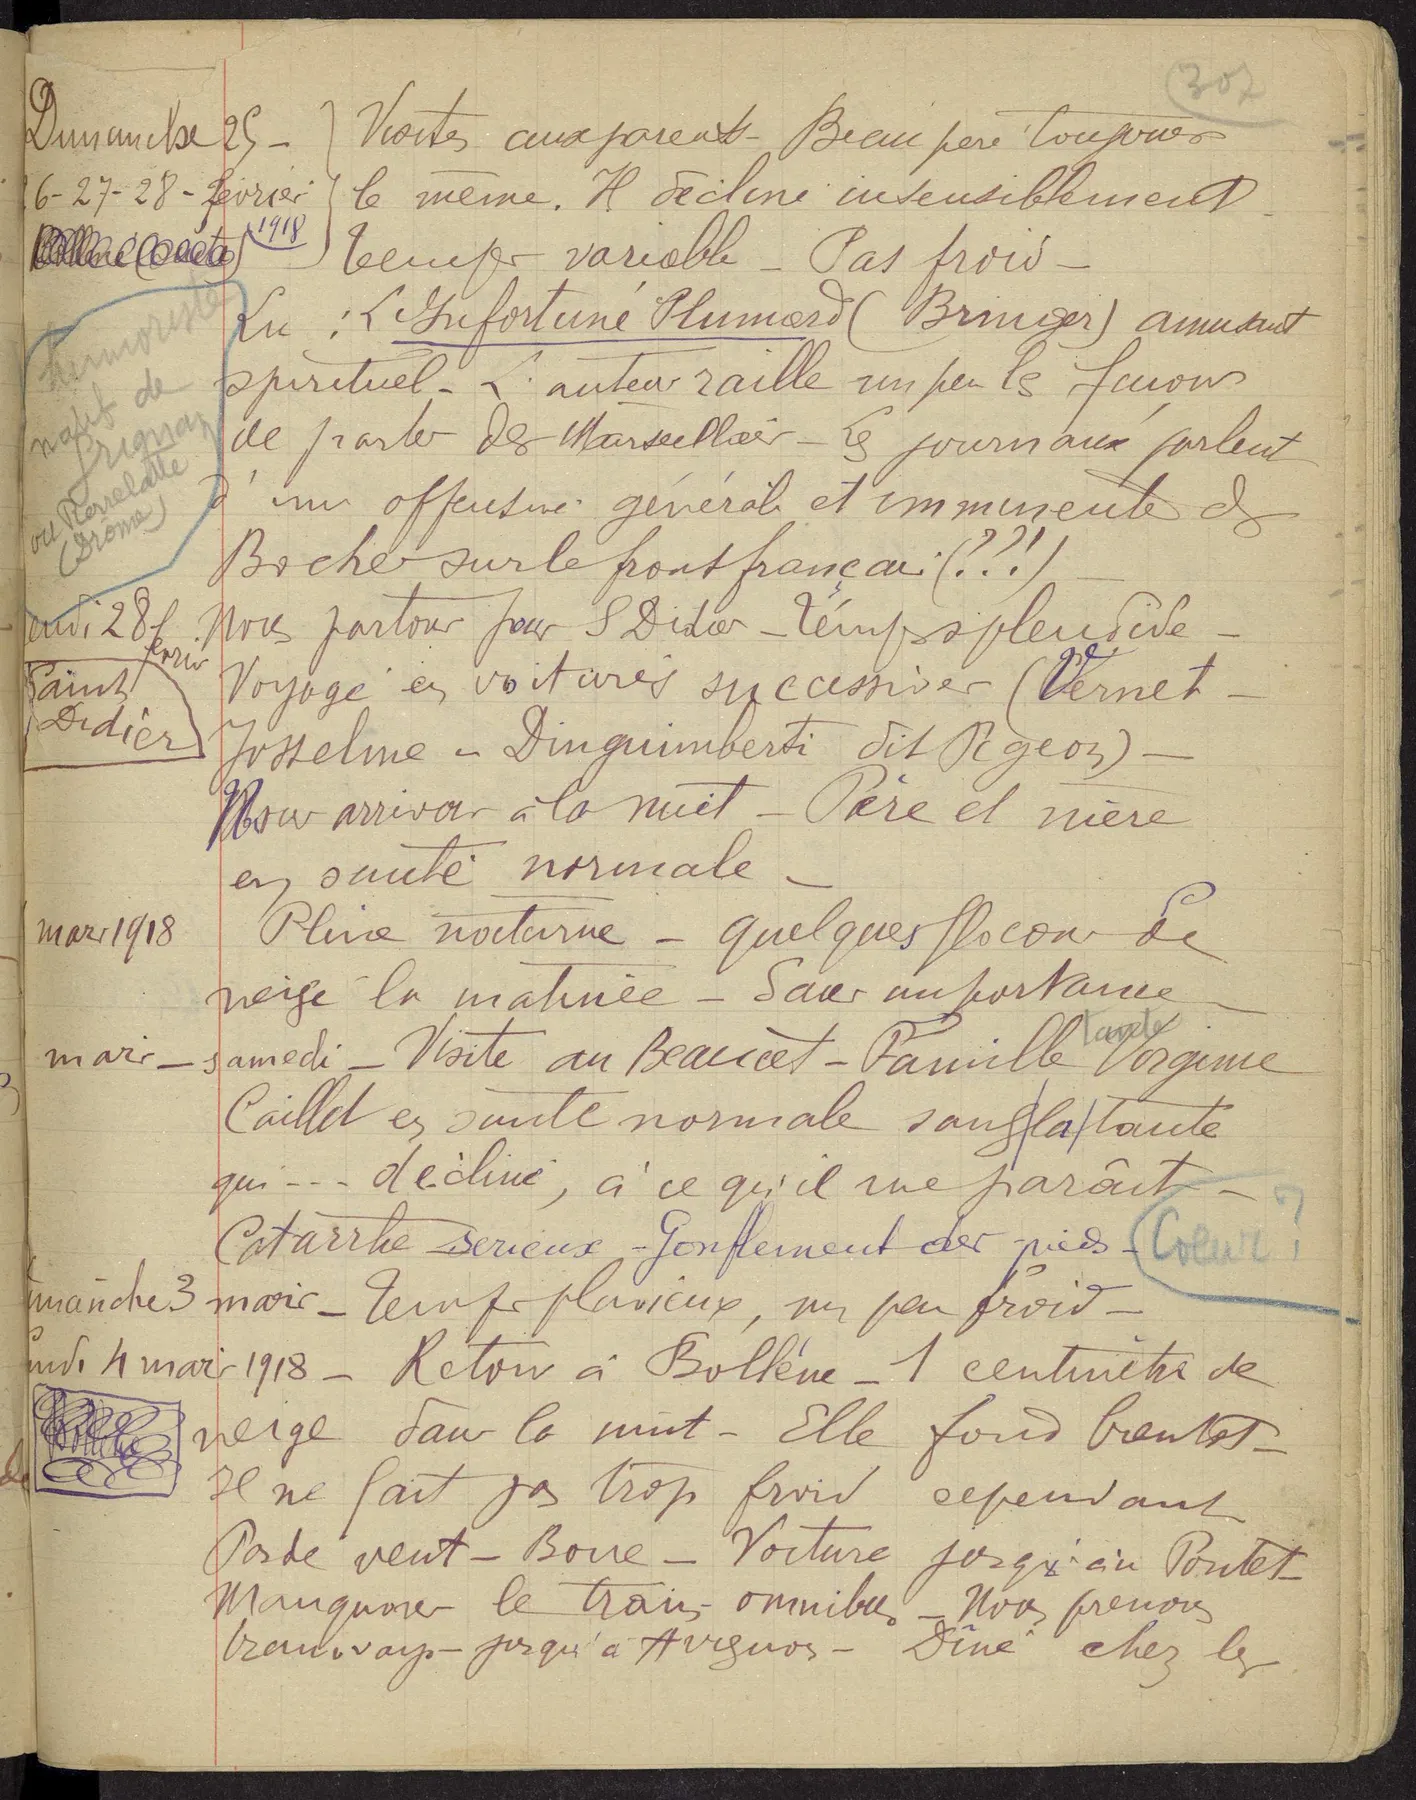 307
Dimanche 25 - Visites aux parents - Beau père toujours
26-27-28 - février le même. Il décline insensiblement -
1918 temps variable - Pas froid -
Lu : L'Infortuné Plumard (Bringer) amusant
humoriste
spirituel - L'auteur raille un peu les façons
natif de
de parler des Marseillais - Les journaux parlent
d'une offensive générale et imminente des
ou Pierrelatte
(Drôme)
Boches sur le front français (??!) -
jeudi 28 février Nous partons pour St Didier - temps splendide -
Saint Didier
Voyage en voitures successives (Vernet -
Josselme - Dinguimberti dit Pigeon) -
Nous arrivons à la nuit - Père et mère
en santé normale -
mars 1918 Pluie nocturne - quelques flocons de
neige la matinée - Sans importance -
mars - samedi - Visite au Beaucet - Famille tante Virginie
Caillet en santé normale sauf la tante
qui --- décline, à ce qu'il me paraît -
Catarrhe serieux - Gonflement des pieds - Coeur ?
Dimanche 3 mars - temps pluvieux, un peu froid -
Lundi 4 mars 1918 - Retour à Bollène - 1 centimètre de
neige dans la nuit - Elle fond bientot -
Il ne fait pas trop froid cependant
Pas de vent - Boue - Voiture jusqu'au Pontet -
Manquons le train omnibus - Nous prenons
tramways jusqu'à Avignon - Dîné chez les